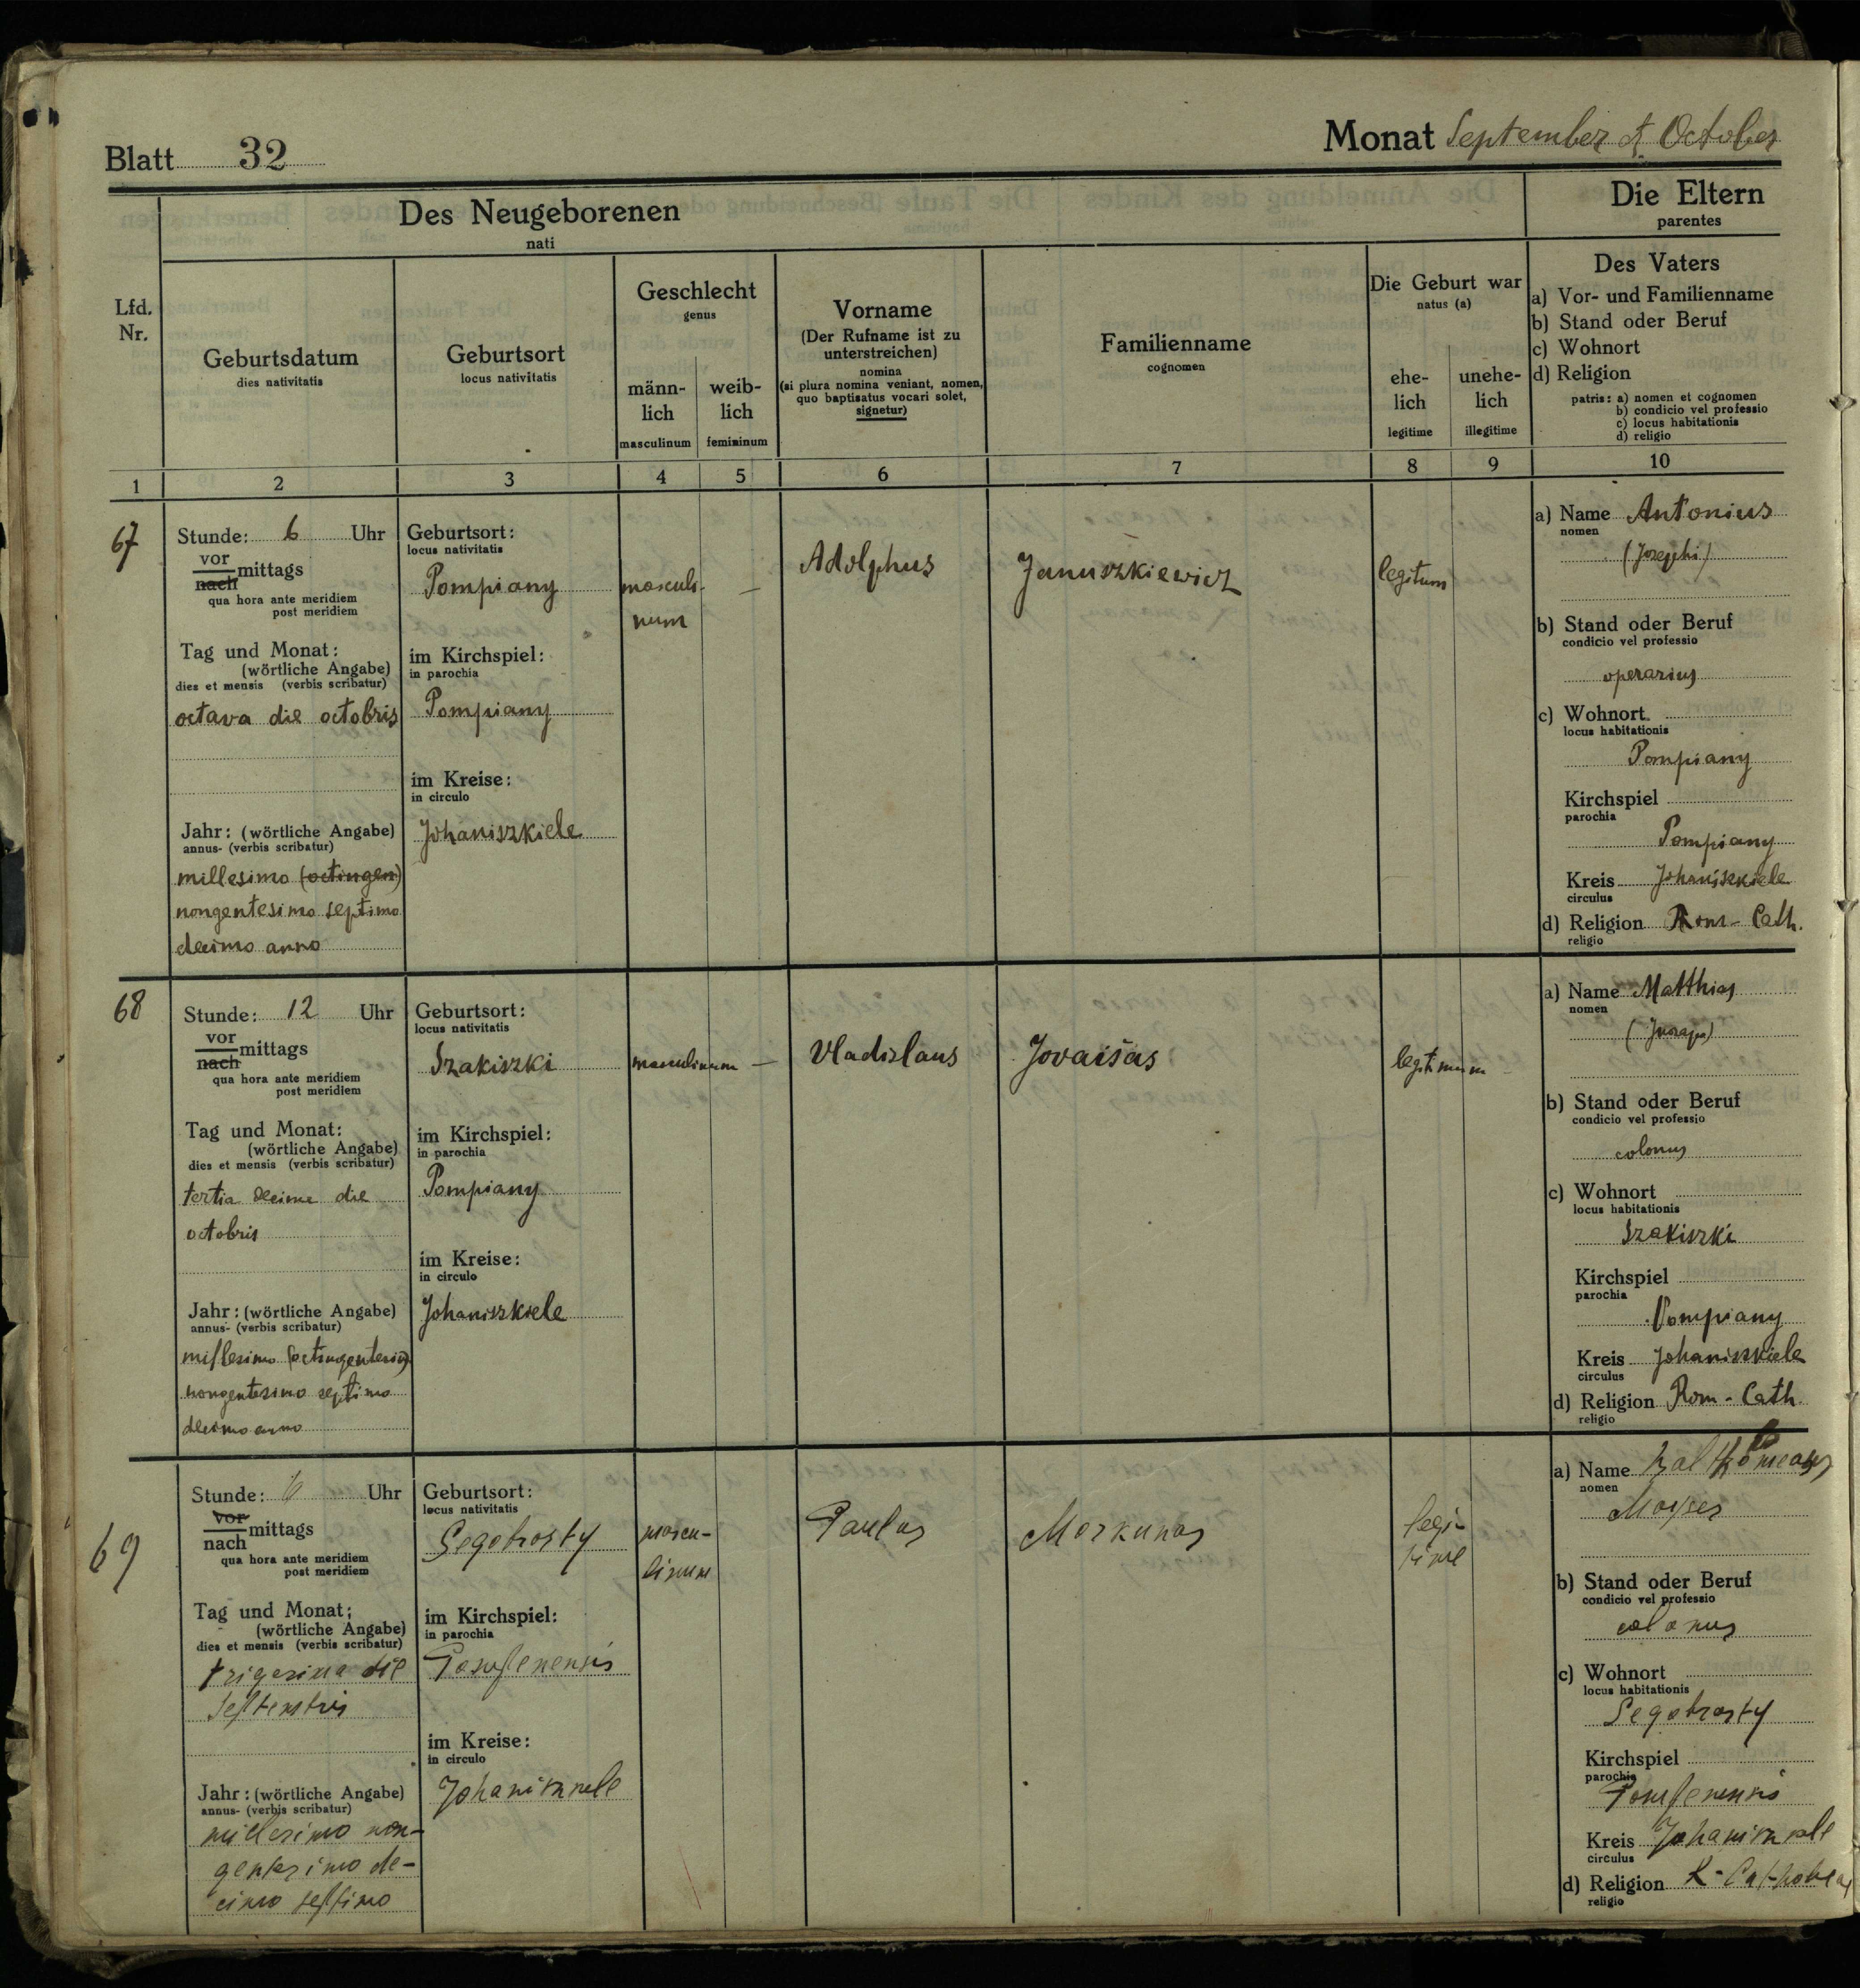 Blatt 32
Monat September et October
Des Neugeborenen
nati
Die Eltern
parentes
Lfd.
Nr.
Geburtsdatum
dies nativitatis
Geburtsort
locus nativitatis
Geschlecht
genus
männ-
lich
masculinum
weib-
lich
femininum
Vorname
(Der Rufname ist zu
unterstreichen)
nomina
(si plura nomina veniant, nomen,
quo baptisatus vocari solet,
signetur)
Familienname
cognomen
Die Geburt war
natus (a)
ehe-
lich
legitime
unehe-
lich
illegitime
Des Vaters
a) Vor- und Familienname
b) Stand oder Beruf
c) Wohnort
d) Religion
patris: a) nomen et cognomen
b) condicio vel professio
c) locus habitationis
d) religio
1 2 3 4 5 6 7 8 9 10
67
Stunde: 6 Uhr
vor
nach mittags
qua hora ante meridiem
post meridiem
Tag und Monat:
(wörtliche Angabe)
dies et mensis (verbis scribatur)
octava die octobris
Jahr: (wörtliche Angabe)
annus- (verbis scribatur)
millesimo (octingen)
nongentesimo septimo
decimo anno
Geburtsort:
locus nativitatis
Pompiany
im Kirchspiel:
in parochia
Pompiany
im Kreise:
in circulo
Johaniszkiele
masculi-
num
—
Adolphus
Januszkiewicz
legitum
a) Name Antonius
nomen
(Josephi)
b) Stand oder Beruf
condicio vel professio
operarius
c) Wohnort
locus habitationis
Pompiany
Kirchspiel
parochia
Pompiany
Kreis Johaniszkiele
circulus
d) Religion Rom-Cath.
religio
68
Stunde: 12 Uhr
vor
nach mittags
qua hora ante meridiem
post meridiem
Tag und Monat:
(wörtliche Angabe)
dies et mensis (verbis scribatur)
tertia decima die
octobris
Jahr: (wörtliche Angabe)
annus- (verbis scribatur)
millesimo
nongentesimo septimo
decimo anno
Geburtsort:
locus nativitatis
Szakiszki
im Kirchspiel:
in parochia
Pompiany
im Kreise:
in circulo
Johaniszkiele
masculinum
—
Vladislaus
Jovaišas
legitimum
a) Name Matthias
nomen
b) Stand oder Beruf
condicio vel professio
colonus
c) Wohnort
locus habitationis
Szakiszki
Kirchspiel
parochia
Pompiany
Kreis Johaniszkiele
circulus
d) Religion Rom-Cath.
religio
69
Stunde: 6 Uhr
vor
nach mittags
qua hora ante meridiem
post meridiem
Tag und Monat:
(wörtliche Angabe)
dies et mensis (verbis scribatur)
trigesima die
Septembris
Jahr: (wörtliche Angabe)
annus- (verbis scribatur)
millesimo non-
gentesimo de-
cimo septimo
Geburtsort:
locus nativitatis
im Kirchspiel:
in parochia
Pompenensis
im Kreise:
in circulo
mascu-
linum
Paulus
Morkunas
legi-
time
a) Name
nomen
b) Stand oder Beruf
condicio vel professio
colonus
c) Wohnort
locus habitationis
Kirchspiel
parochia
Pompenensis
Kreis
circulus
d) Religion
religio